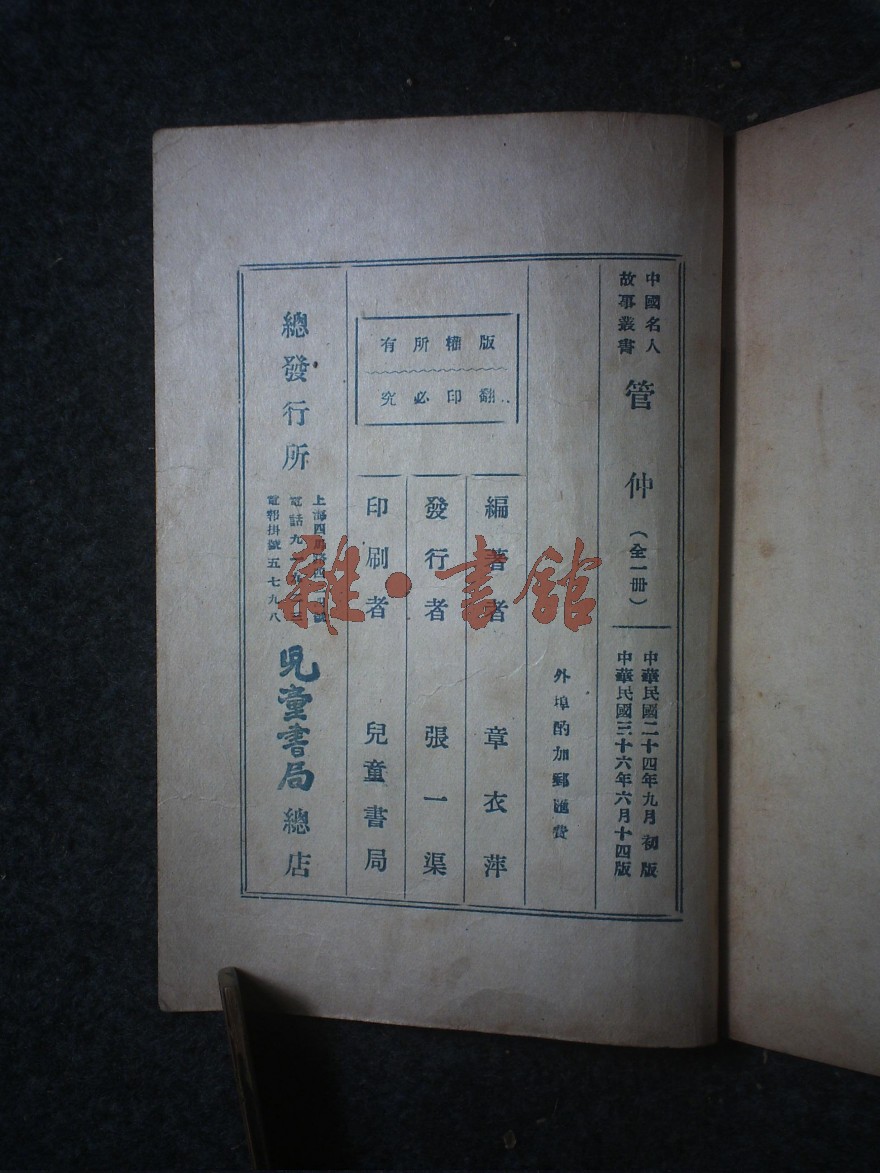 中國名人
故事叢書
管仲（全一冊）
中華民國二十四年九月初版
中華民國三十六年六月十四版
外埠酌加郵匯費
版權所有
翻印必究
編著者 章衣萍
發行者 張一渠
印刷者 兒童書局
總發行所
上海四馬路
電話九一
電報掛號五七九八
兒童書局總店
雜·書館